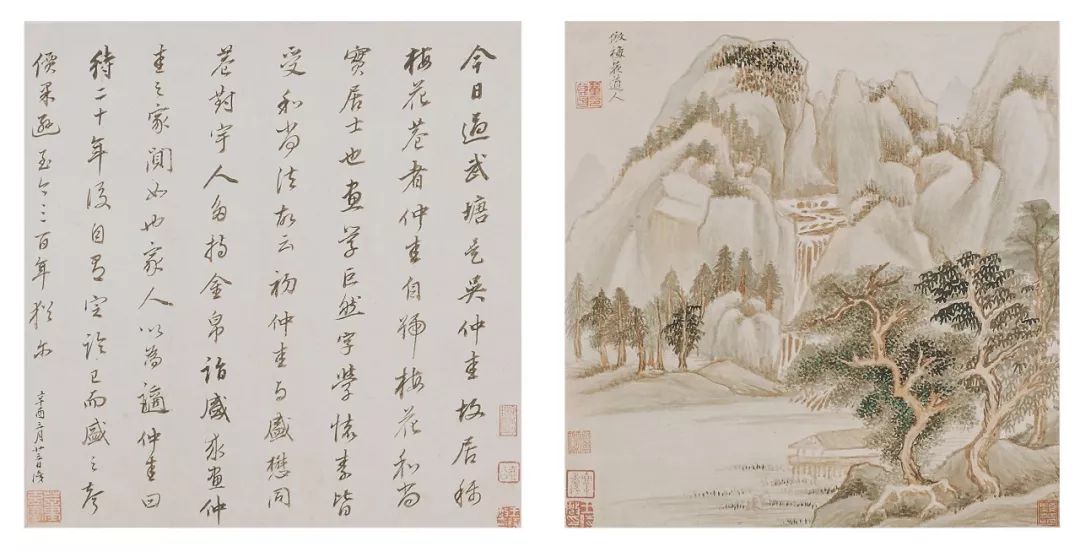 今日過武塘是吳仲圭故居稱
梅花菴者仲圭自號梅花和尚
實居士也畫學巨然字學懷素皆
受和尚法故云初仲圭与盛懋同
巷對宇人多持金帛詣盛求畫仲
圭之家闃如也家人以為謫仲圭曰
待二十年後自有定論已而盛之聲
價果遜至今三百年猶尔
辛酉三月廿三日識
倣梅花道人